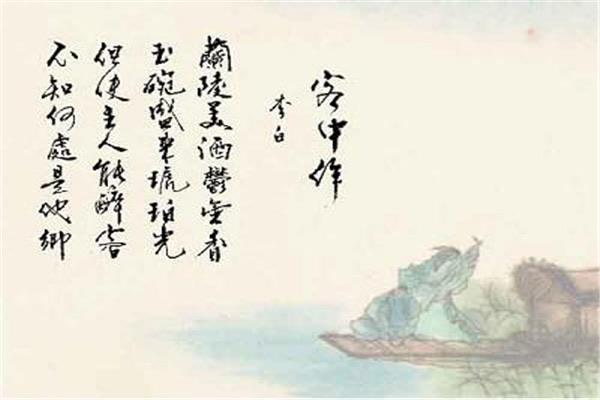 客中作
李白
蘭陵美酒鬱金香
玉碗盛來琥珀光
但使主人能醉客
不知何處是他鄉